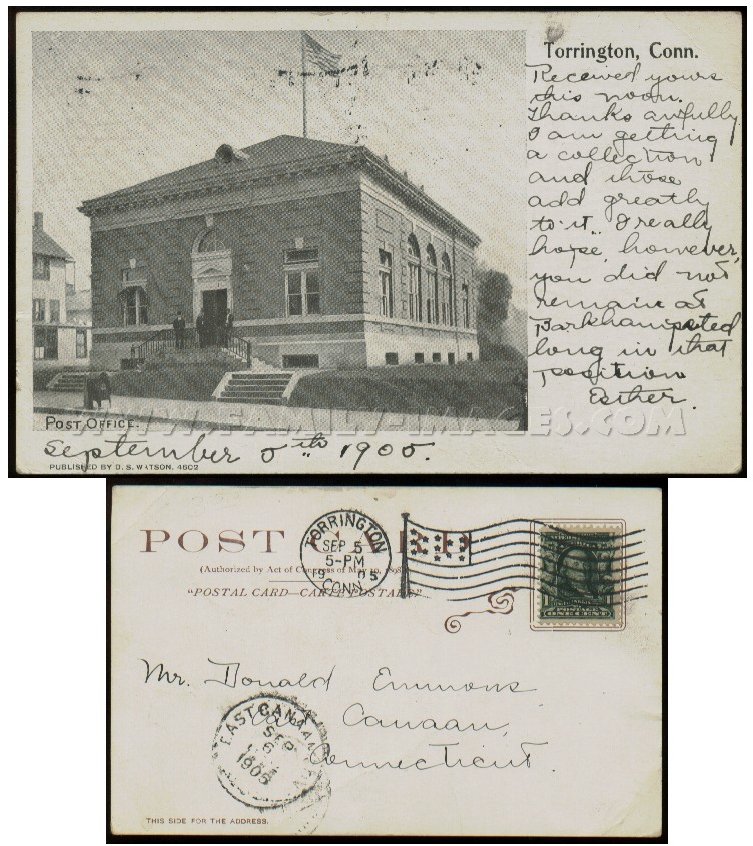 Torrington, Conn.
Received yours
this noon.
Thanks awfully
I am getting
a collection
and those
add greatly
to it. I really
hope, however,
you did not
remain at
Barkhamsted
long in that
position
Esther.
POST OFFICE.
WWW.FAMILY-IMAGES.COM
September 5th 1905.
PUBLISHED BY D. S. WATSON, 4602
POST CARD
(Authorized by Act of Congress of May 19, 1898)
"POSTAL CARD—CARTE POSTALE"
TORRINGTON
SEP 5
5-PM
19 05
CONN.
POSTAGE
ONE CENT
Mr. Donald Emmons
East Canaan,
Connecticut.
EAST CANAAN
SEP
6
1905
THIS SIDE FOR THE ADDRESS.